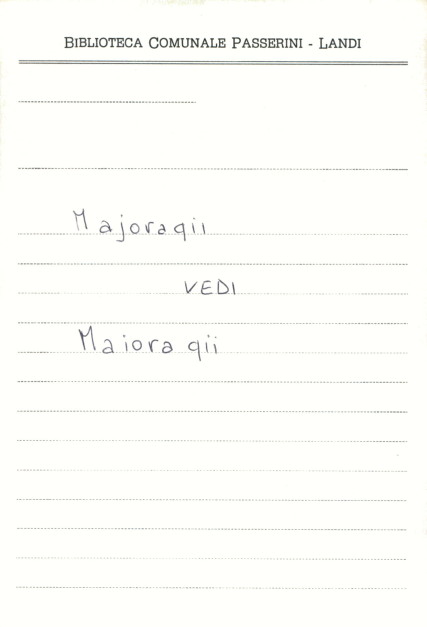 BIBLIOTECA COMUNALE PASSERINI - LANDI
Majoragii
VEDI
Maioragii